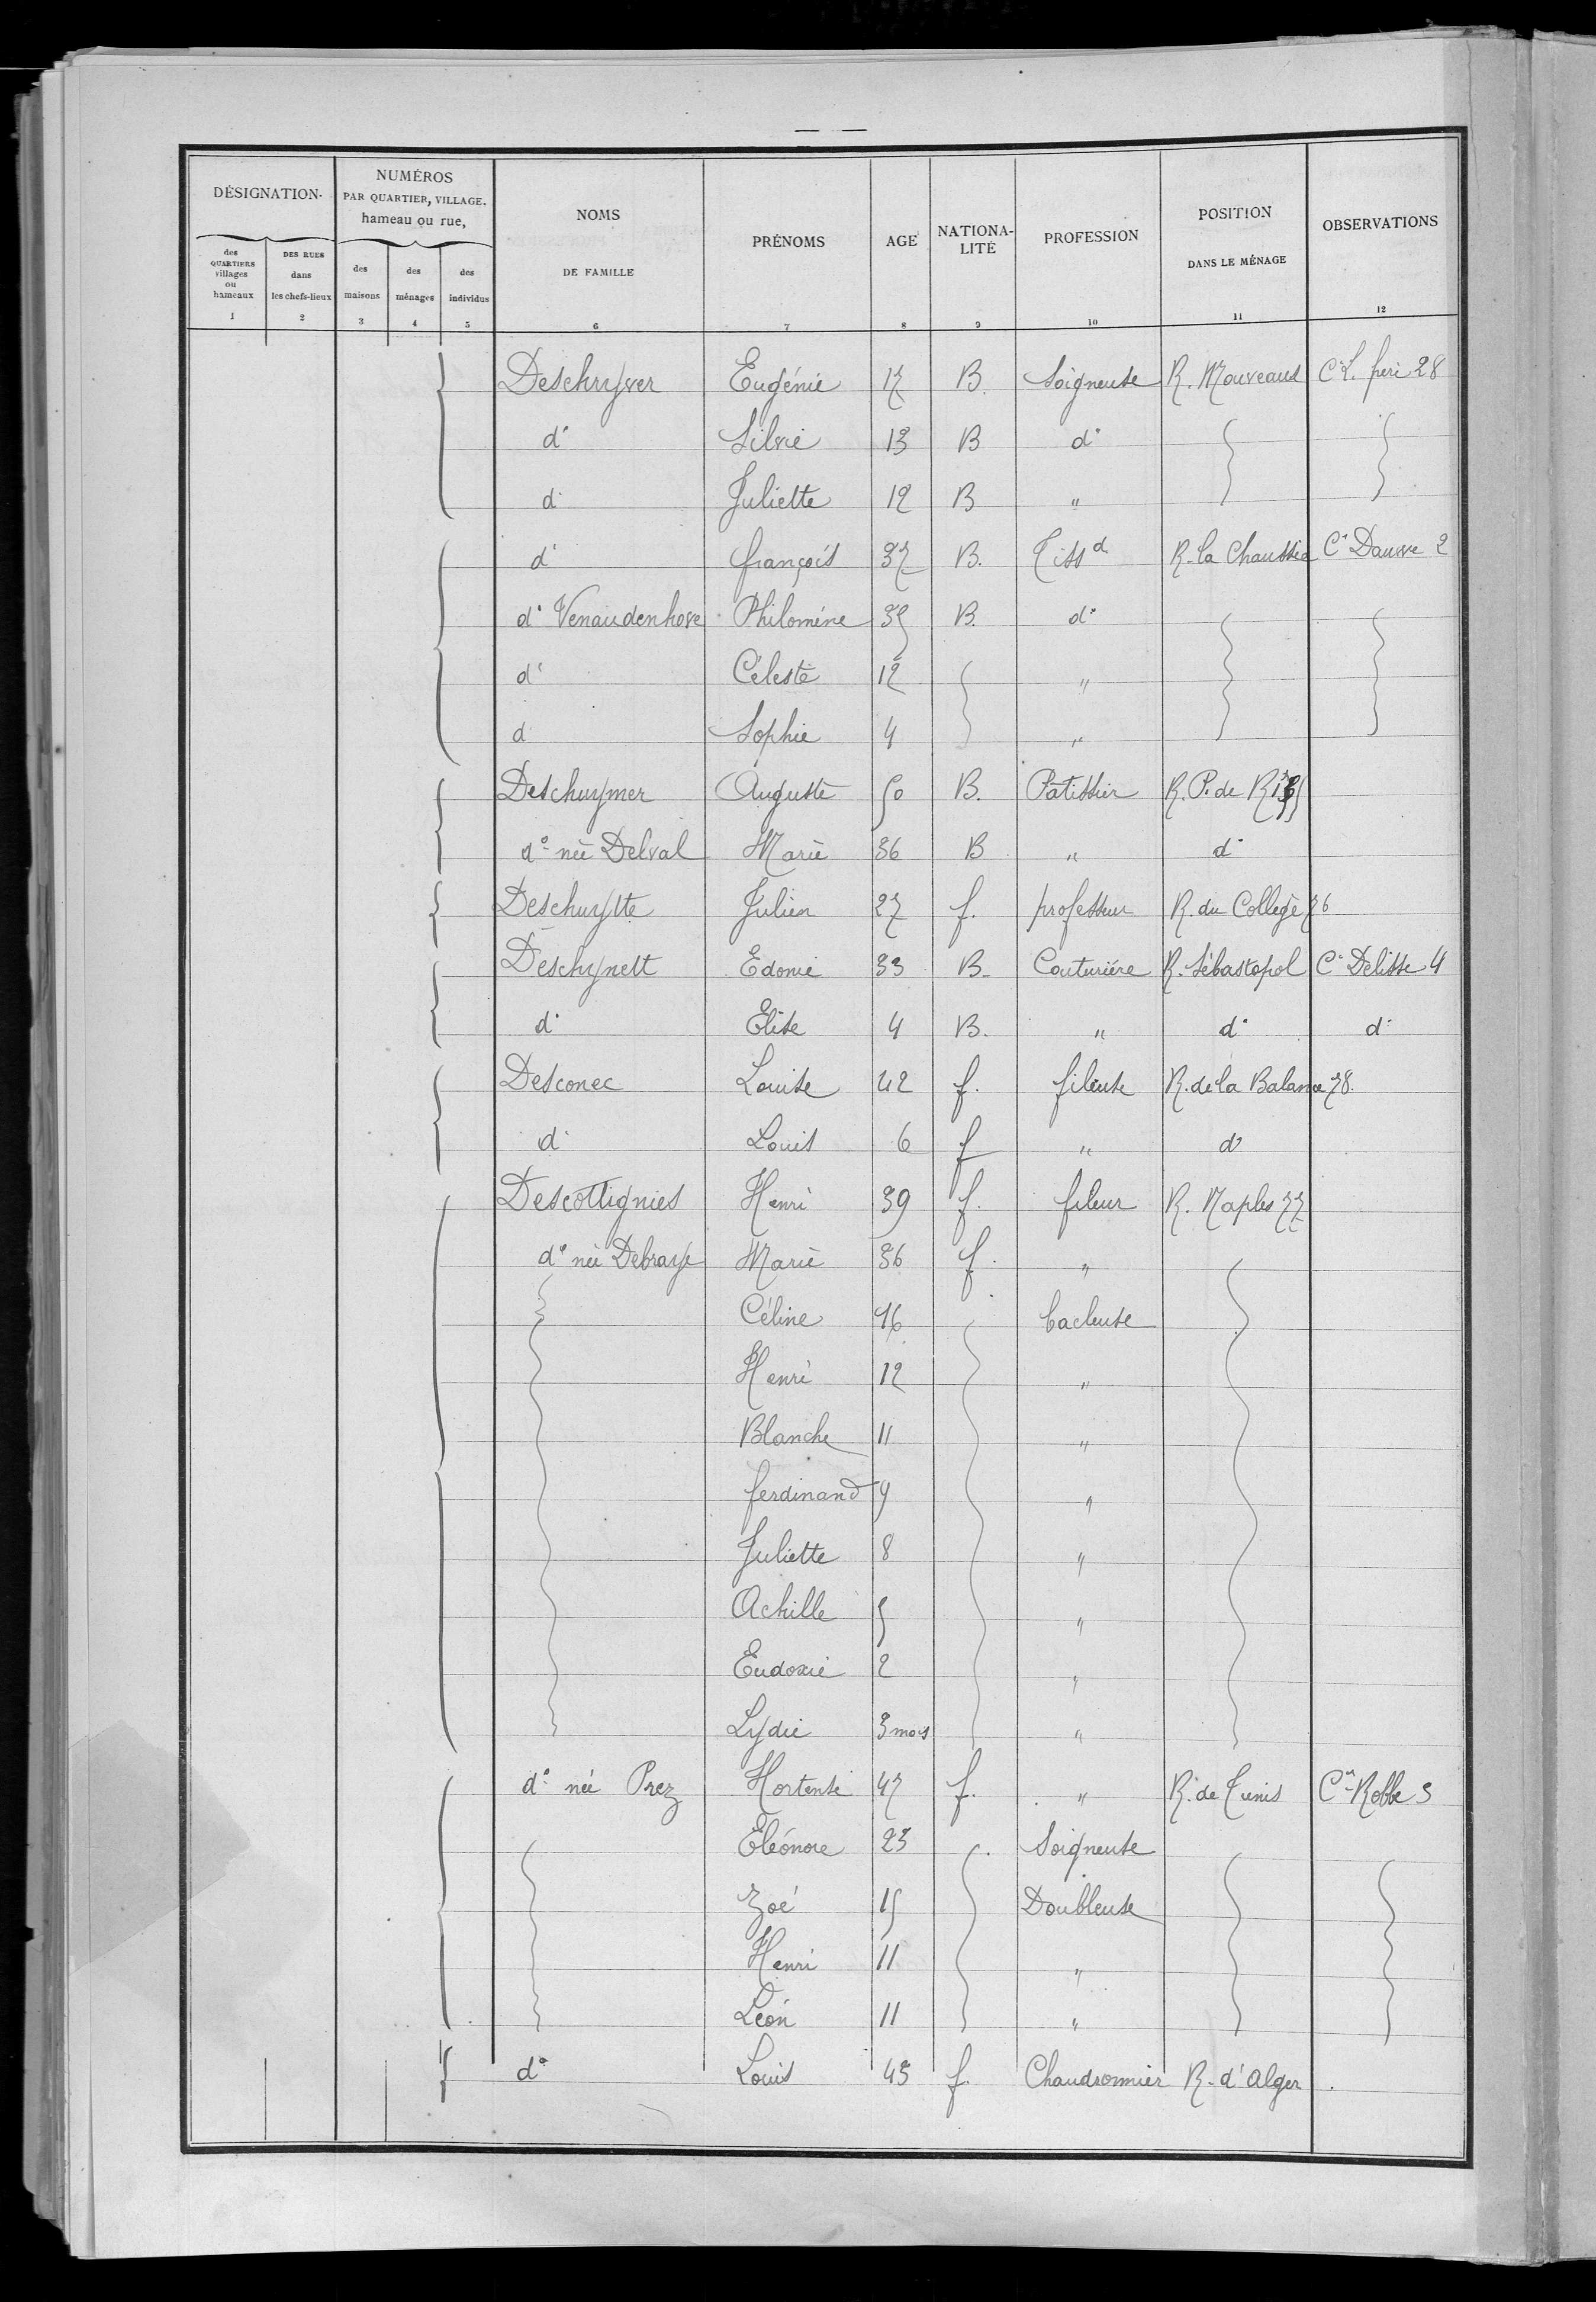 DÉSIGNATION.
NUMÉROS PAR QUARTIER, VILLAGE. hameau ou rue,
NOMS DE FAMILLE
PRÉNOMS
AGE
NATIONA-LITÉ
PROFESSION
POSITION DANS LE MÉNAGE
OBSERVATIONS
des QUARTIERS villages ou hameaux
DES RUES dans les chefs-lieux
des maisons
des ménages
des individus
1 2 3 4 5 6 7 8 9 10 11 12
Deschryver Eugénie 17 B. Soigneuse R. Mouveaux 28
d° Silvie 13 B d°
d° Juliette 12 B "
d° françois 37 B. Tissd R. la Chaussée Cr Dauwe 2
d° Venaudenhove Philomène 35 B. d°
d° Céleste 12 "
d° Sophie 4 "
Deschuymer Auguste 50 B. Patissier R. P. de
d° née Delval Marie 36 B " d°
Deschuytte Julien 27 f. professeur R. du Collège 76
Deschynett Edonie 33 B. Couturière R. Sébastopol Cr Delisse 4
d° Elise 4 B. " d° d°
Desconec Louise 42 f. fileuse R. de la Balance 78.
d° Louis 6 f " d°
Descottignies Henri 39 f. fileur R. Naples 77
d° née Debraye Marie 36 f. "
Céline 16 bacleuse
Henri 12 "
Blanche 11 "
ferdinand 9 "
Juliette 8 "
Achille 5 "
Eudoxie 2 "
Lydie 3 mois "
d° née Prez Hortense 47 f. " R. de Tunis Cr Robbe 3
Eléonore 23 Soigneuse
Zoé 15 Doubleuse
Henri 11 "
Léon 11 "
d° Louis 43 f. Chaudronnier R. d'Alger